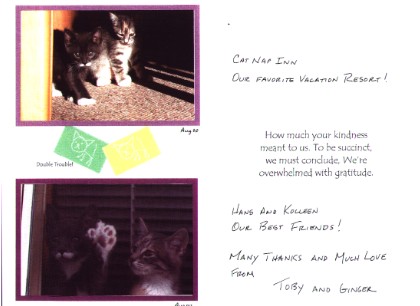 Aug 00
Double Trouble!
CAT NAP INN
OUR FAVORITE VACATION RESORT!
How much your kindness
meant to us. To be succinct,
we must conclude, We're
overwhelmed with gratitude.
HANS AND KOLLEEN
OUR BEST FRIENDS!
MANY THANKS AND MUCH LOVE
FROM
TOBY AND GINGER